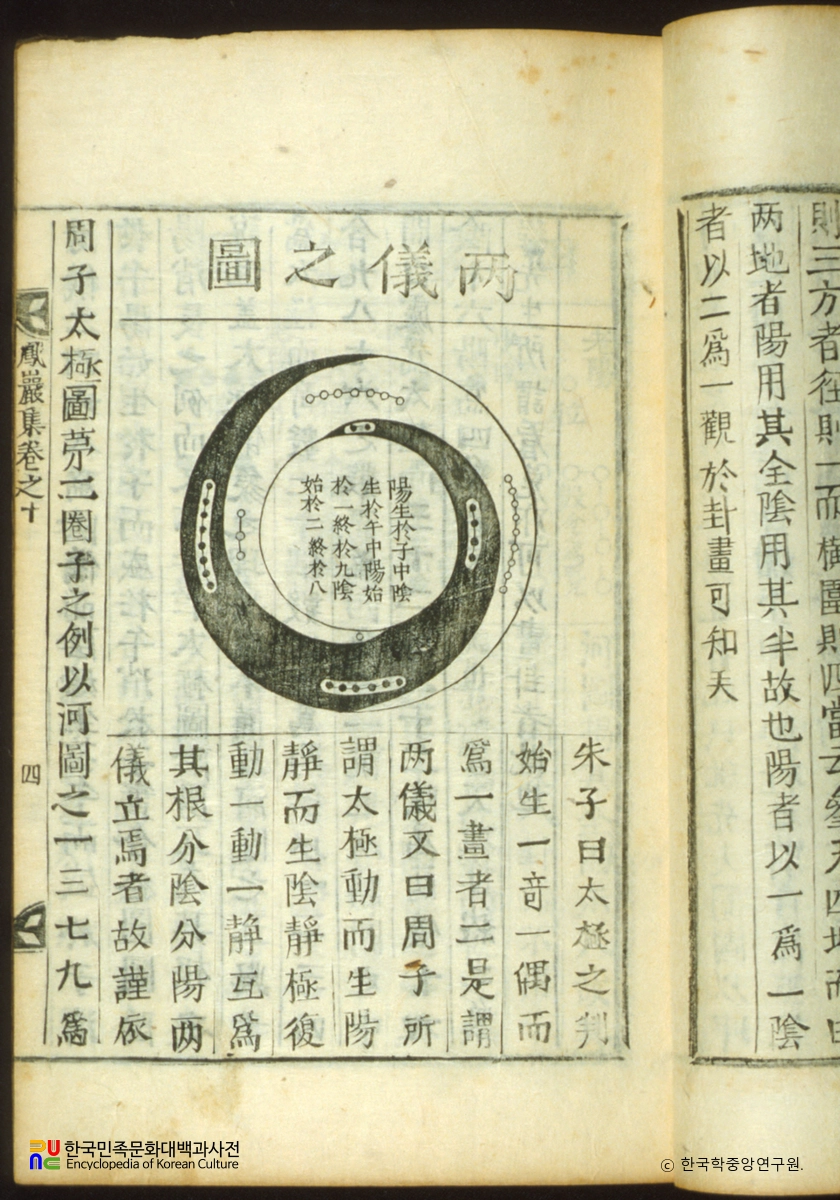 則三方者徑則一而橫圍則四當云參天四地而曰
两地者陽用其全陰用其半故也陽者以一爲一陰
者以二爲一觀於卦畫可知矣
两儀之圖
陽生於子中陰
生於午中陽始
於一終於九陰
始於二終於八
朱子曰太極之判
始生一竒一偶而
爲一畫者二是謂
两儀又曰周子所
謂太極動而生陽
靜而生陰靜極復
動一動一静互爲
其根分陰分陽两
儀立焉者故謹依
周子太極圖苐二圈子之例以河圖之一三七九爲
鳳巖集卷之十
四
한국민족문화대백과사전
Encyclopedia of Korean Culture
ⓒ 한국학중앙연구원.